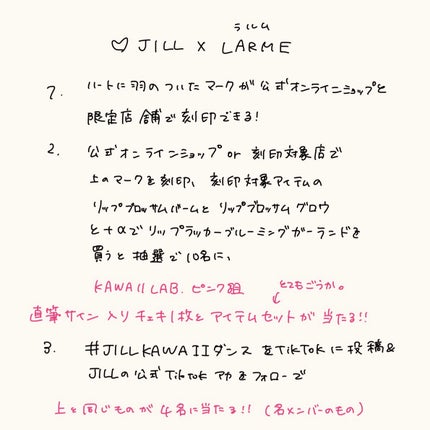 ラルム
♡ JILL × LARME
1. ハートに羽のついたマークが公式オンラインショップと
限定店舗で刻印できる!
2. 公式オンラインショップ or 刻印対象店で
上のマークを刻印、刻印対象アイテムの
リップブロッサムバームとリップブロッサム グロウ
と+αでリップラッカーブルーミングガーランドを
買うと抽選で10名に、
KAWAII LAB. ピンク組 とてもごうか。
直筆サイン入りチェキ1枚とアイテムセットが当たる!!
3. #JILLKAWAIIダンス をTikTokに投稿&
JILLの公式TikTokアカをフォローで
上と同じものが4名に当たる!! (各メンバーのもの)